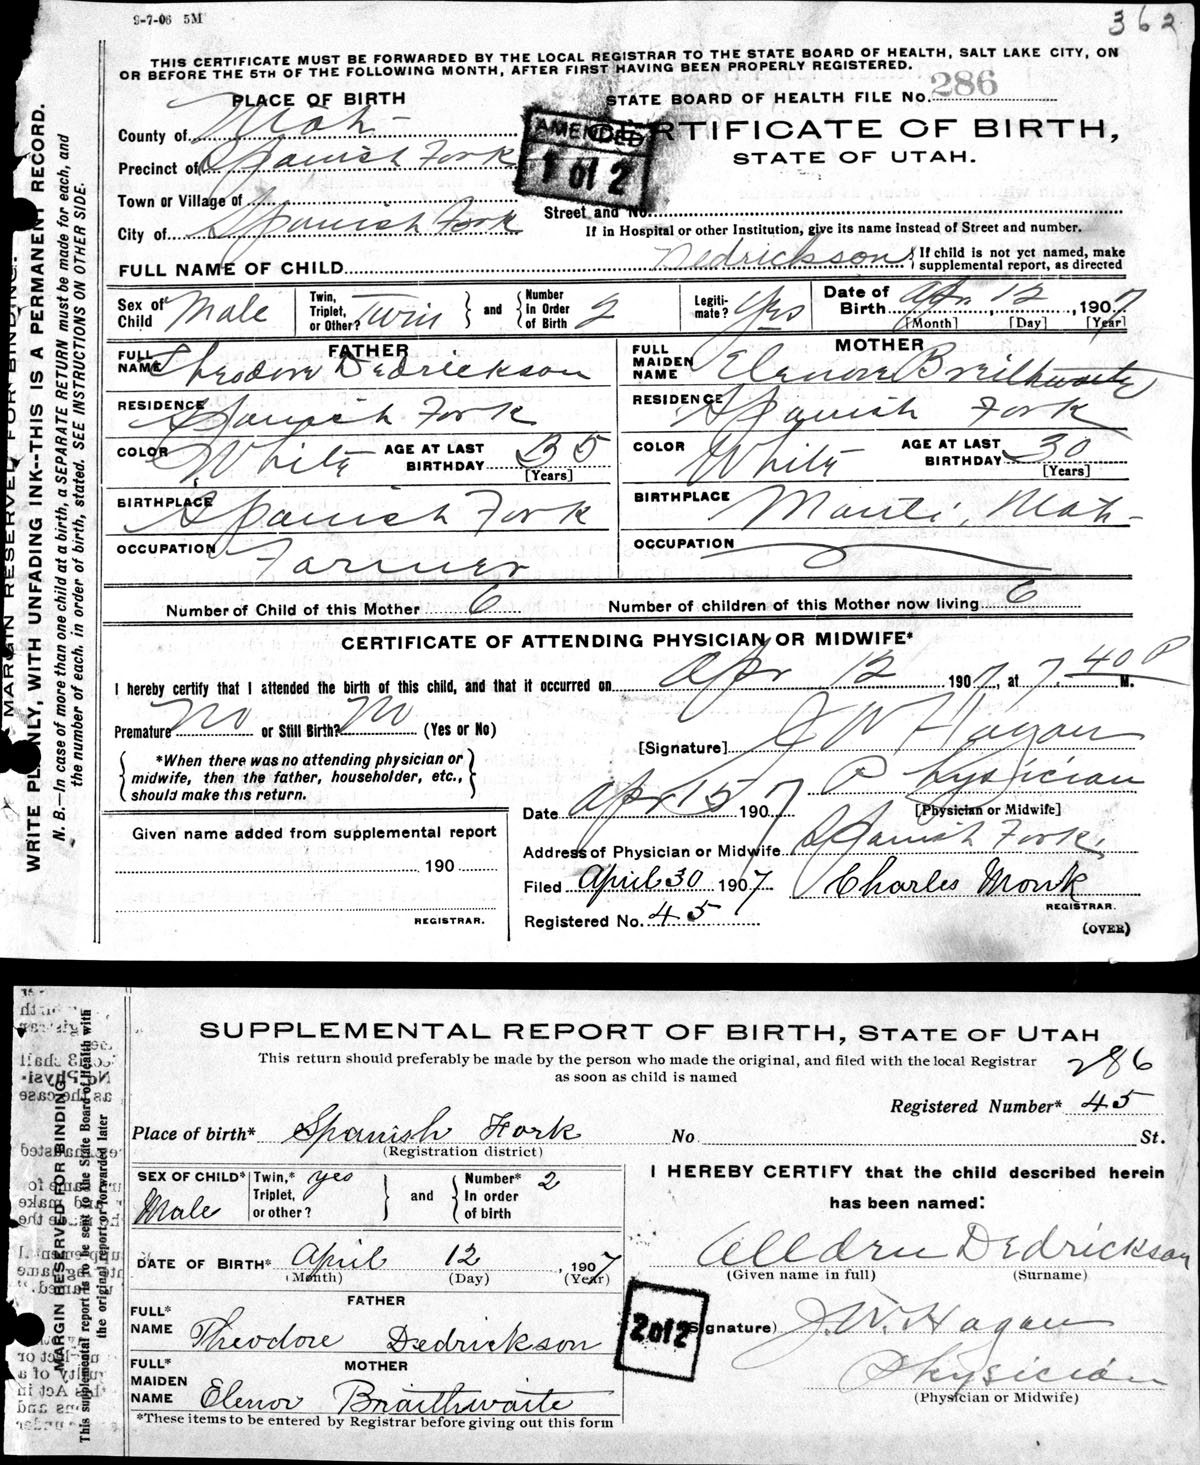 9-7-06 5M
362
THIS CERTIFICATE MUST BE FORWARDED BY THE LOCAL REGISTRAR TO THE STATE BOARD OF HEALTH, SALT LAKE CITY, ON
OR BEFORE THE 5TH OF THE FOLLOWING MONTH, AFTER FIRST HAVING BEEN PROPERLY REGISTERED.
PLACE OF BIRTH
STATE BOARD OF HEALTH FILE No. 286
County of Utah
AMENDED
1 of 2
CERTIFICATE OF BIRTH,
STATE OF UTAH.
Precinct of Spanish Fork
Town or Village of
Street and No.
City of Spanish Fork
If in Hospital or other Institution, give its name instead of Street and number.
FULL NAME OF CHILD Dedrickson { If child is not yet named, make
supplemental report, as directed
Sex of Child Male
Twin, Triplet, or Other? Twin } and { Number in Order of Birth 2
Legiti-mate? Yes
Date of Birth Apr. 12, 1907
[Month] [Day] [Year]
FATHER
FULL NAME Theodore Dedrickson
RESIDENCE Spanish Fork
COLOR White AGE AT LAST BIRTHDAY 35
[Years]
BIRTHPLACE Spanish Fork
OCCUPATION Farmer
MOTHER
FULL MAIDEN NAME Elenore Breithwaite
RESIDENCE Spanish Fork
COLOR White AGE AT LAST BIRTHDAY 30
[Years]
BIRTHPLACE Manti, Utah
OCCUPATION
Number of Child of this Mother 6 Number of children of this Mother now living 6
CERTIFICATE OF ATTENDING PHYSICIAN OR MIDWIFE*
I hereby certify that I attended the birth of this child, and that it occurred on Apr 12 1907, at 7.40 P M.
Premature No or Still Birth? No (Yes or No)
[Signature] J W Hagan
{ *When there was no attending physician or
midwife, then the father, householder, etc.,
should make this return. }
Date Apr 15 1907
Physician
[Physician or Midwife]
Address of Physician or Midwife Spanish Fork,
Filed April 30 1907 Charles Monk
REGISTRAR.
Registered No. 45
(OVER)
Given name added from supplemental report
190
REGISTRAR.
MARGIN RESERVED FOR BINDING.
WRITE PLAINLY, WITH UNFADING INK--THIS IS A PERMANENT RECORD.
N. B.—In case of more than one child at a birth, a SEPARATE RETURN must be made for each, and
the number of each, in order of birth, stated. SEE INSTRUCTIONS ON OTHER SIDE.
SUPPLEMENTAL REPORT OF BIRTH, STATE OF UTAH
This return should preferably be made by the person who made the original, and filed with the local Registrar
as soon as child is named
286
Registered Number* 45
Place of birth* Spanish Fork No St.
(Registration district)
SEX OF CHILD* Male
Twin,* Triplet, or other? yes } and { Number* In order of birth 2
DATE OF BIRTH* April 12, 1907
(Month) (Day) (Year)
FATHER
FULL* NAME Theodore Dedrickson
MOTHER
FULL* MAIDEN NAME Elenor Braithwaite
*These items to be entered by Registrar before giving out this form
I HEREBY CERTIFY that the child described herein
has been named:
Alldru Dedrickson
(Given name in full) (Surname)
2 of 2
(Signature) J. W. Hagan
Physician
(Physician or Midwife)
MARGIN RESERVED FOR BINDING
This supplemental report is to be sent to the State Board of Health with
the original report or forwarded later